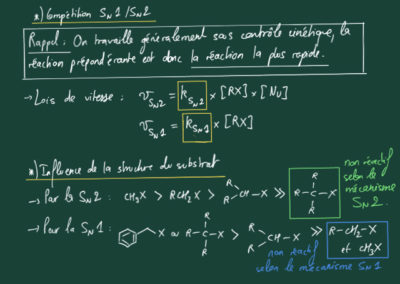 *) Compétition SN1/SN2
Rappel : On travaille généralement sous contrôle cinétique, la
réaction prépondérante est donc la réaction la plus rapide.
→ Lois de vitesse : vSN2 = kSN2 × [RX] × [Nu]
vSN1 = kSN1 × [RX]
*) Influence de la structure du substrat
→ Par la SN2 : CH3X > RCH2X > R R CH-X >> R R-C-X R
non réactif
selon le
mécanisme
SN2.
→ Pour la SN1 : X ou R R-C-X R > R R CH-X >> R-CH2-X
et CH3X
non réactif
selon le mécanisme SN1